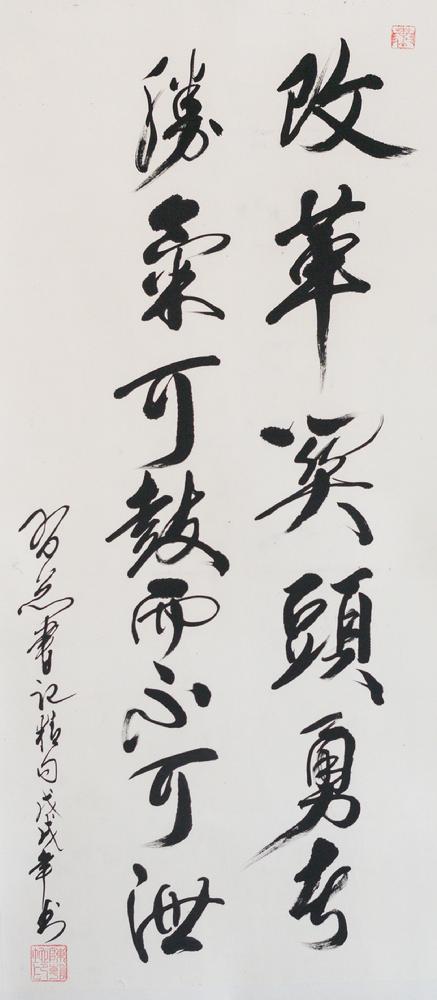 改革關頭勇者
勝氣可鼓而不可泄
習总書記精句戊戌年书